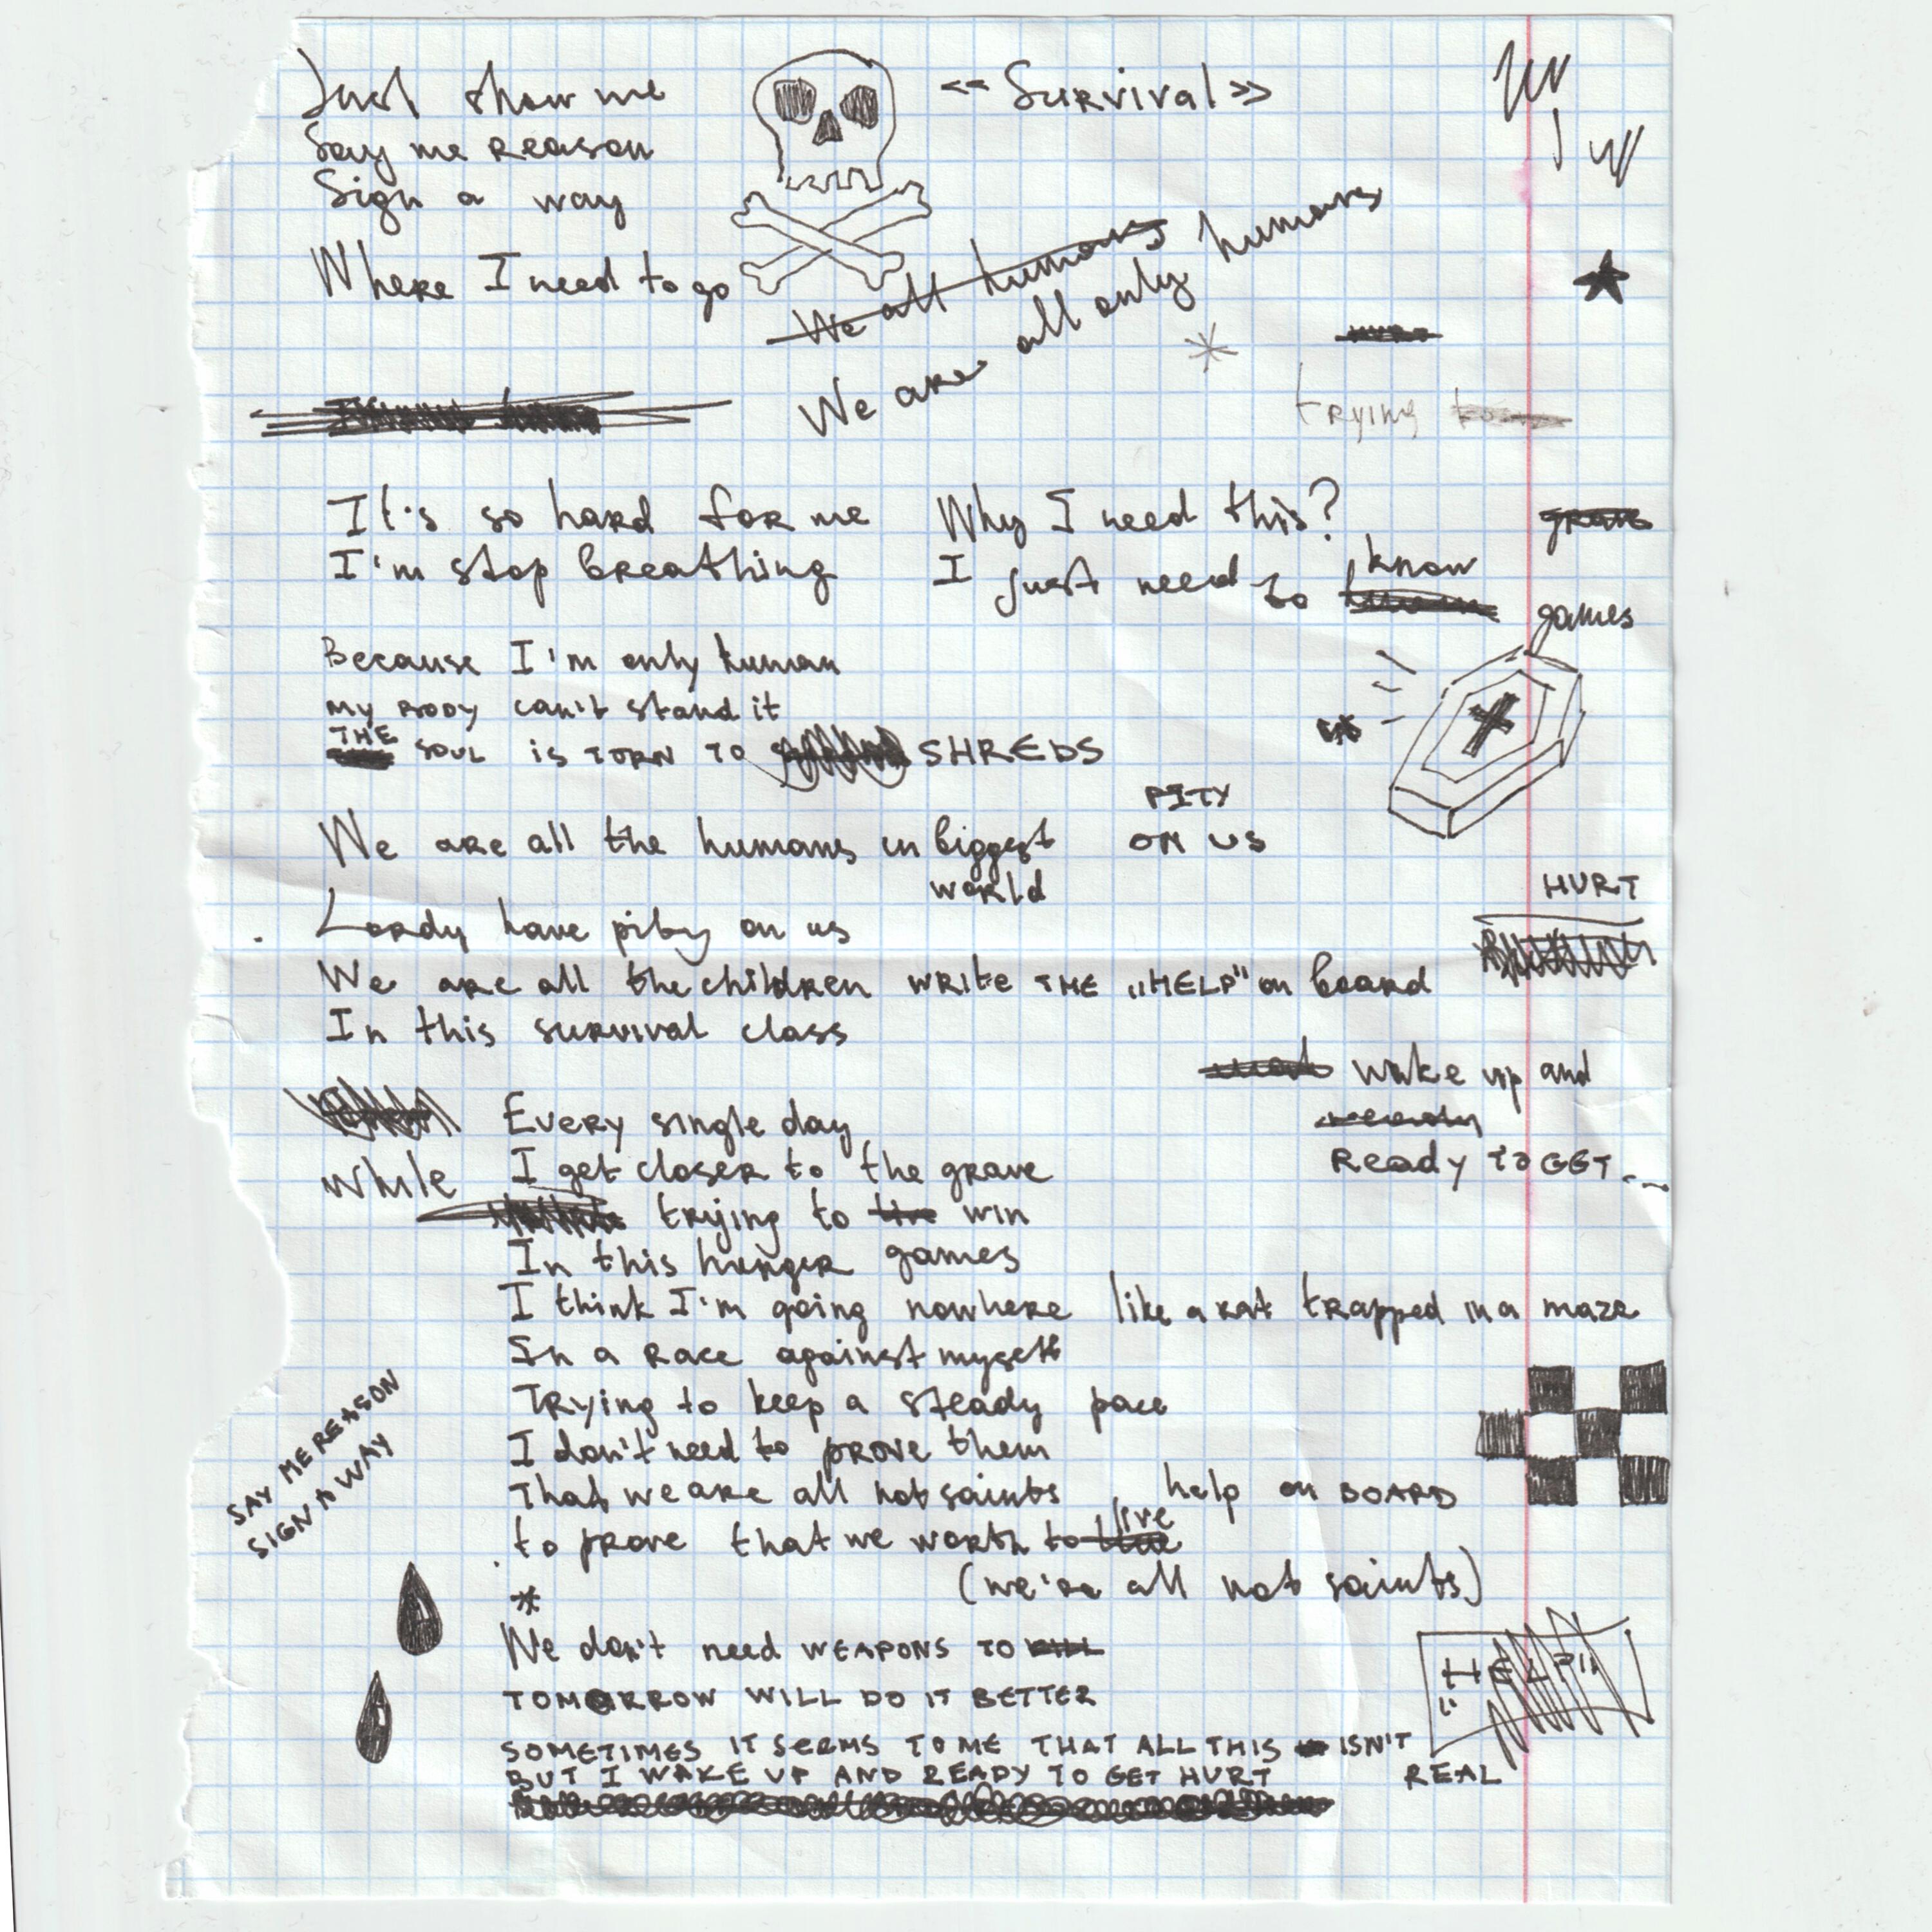 Just show me
<< Survival >>
Say me reason
Sign a way
Where I need to go
We all humans
We are all only humans
trying to
It's so hard for me
Why I need this?
I'm stop breathing
I just need to know
games
Because I'm only human
my BODY can't stand it
THE SOUL is TORN TO SHREDS
We are all the humans in biggest world
PITY ON US
HURT
Lordy have pity on us
We are all the children write THE "HELP" on board
In this survival class
wake up and
ready
Ready TO GET...
Every single day
While I get closer to the grave
trying to live win
In this hunger games
I think I'm going nowhere like a rat trapped in a maze
In a race against myself
Trying to keep a steady pace
I don't need to prove them
That we are all not saints
help on BOARD
to prove that we worth to live
(we're all not saints)
SAY ME REASON
SIGN A WAY
*
We don't need WEAPONS TO KILL
TOMORROW WILL DO IT BETTER
"HELP"
SOMETIMES IT SEEMS TO ME THAT ALL THIS ISN'T REAL
BUT I WAKE UP AND READY TO GET HURT